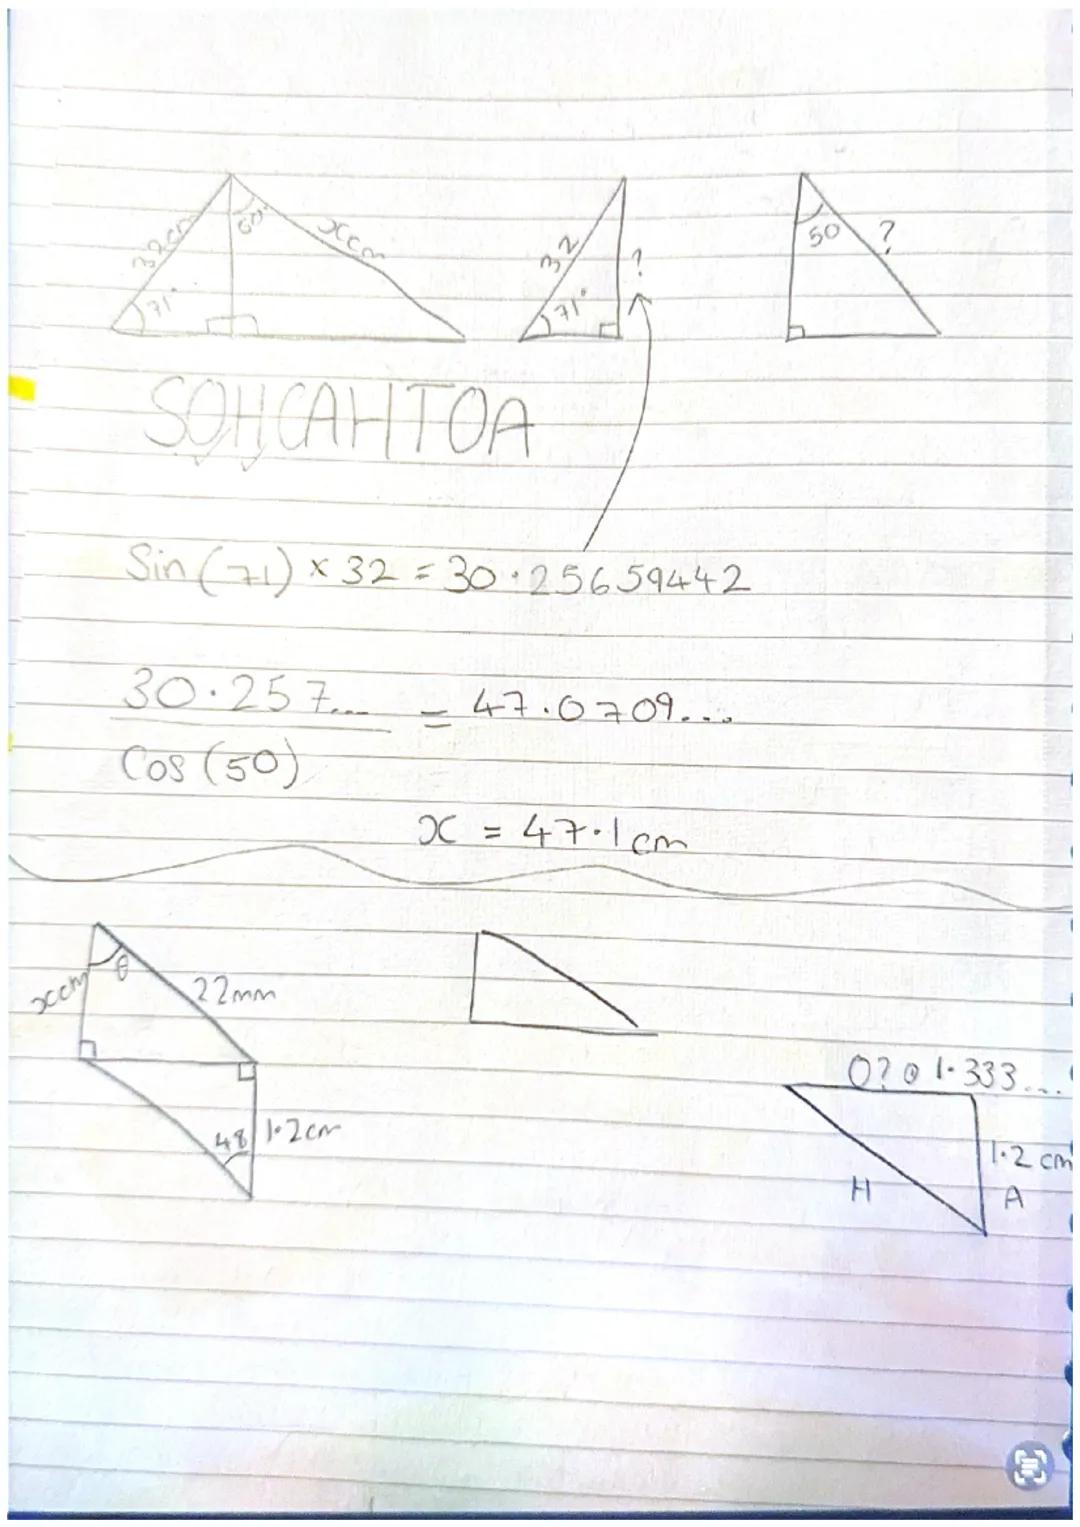 32cm 71° 60° xcm 32 71° ? 50 ?
SOHCAHTOA
Sin (71) × 32 = 30.25659442
30.257... = 47.0709...
Cos (50)
x = 47.1 cm
xcm θ 22mm
O? 1.333...
48 1.2cm 1.2 cm
H A